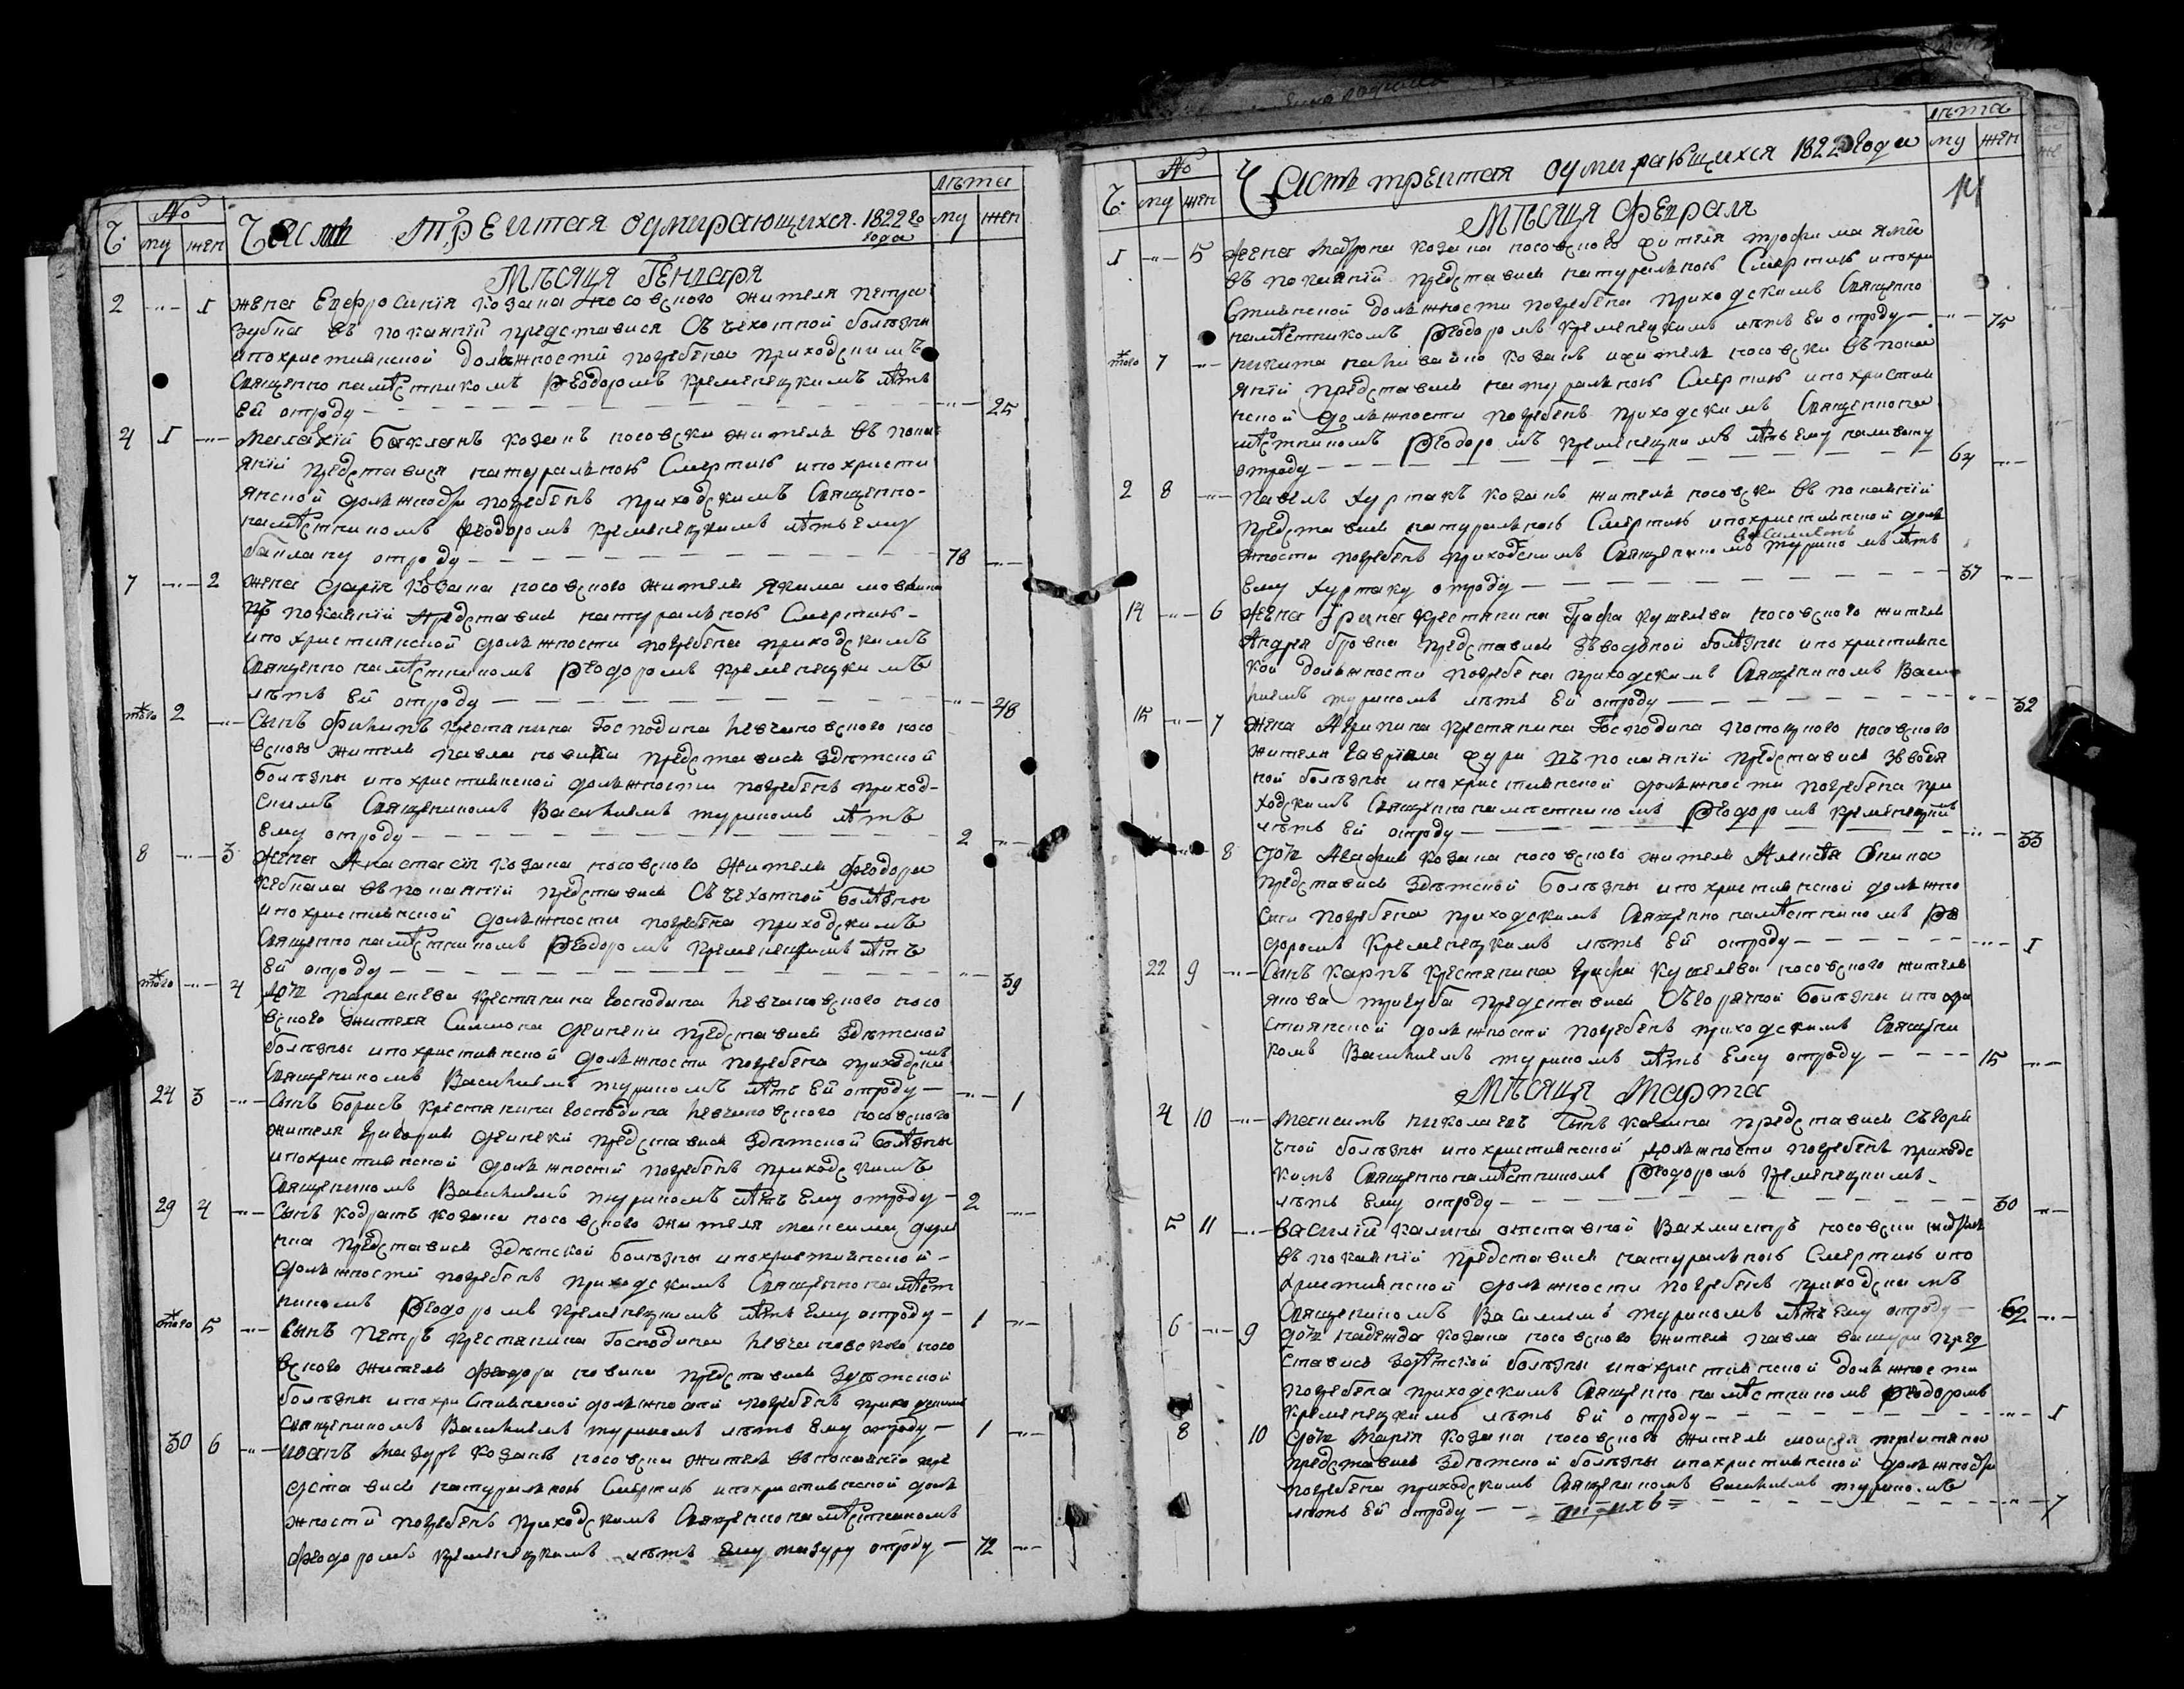 лѣта
Ч. № му жен Часть Третая оумирающихся. 1822го года му жен
Мѣсяца Генваря
2 1 жена Ефросинія козака носовского жителя Петра
Зубка въ покаяніи представися Съ чехотной болѣзны
ипохристиянской должности погребена приходскимъ
Священнонамѣстникомъ Ѳеодоромъ Кременецкимъ лѣтъ
ей отроду 25
4 1 Малахій Бакланъ козакъ носовски житель въ пока
яніи представися натуралною Смертию ипохристи
янской должнодти погребенъ приходскимъ Священно-
намѣстникомъ Феодоромъ Кременецкимъ лѣтъ ему
баклану отроду 78
7 2 жена Дарія козака носовского жителя Якима
въ покаяніи представися натуралною Смертию
ипохристиянской должности погребена приходскимъ
Священнонамѣстникомъ Ѳеодоромъ Кременецкимъ
лѣтъ ей отроду 28
тогож 2 Сынъ Филипъ крестянина Господина носо
вского жителя Павла новика представися Здѣтской
болѣзны ипохристиянской должности погребенъ приход-
скимъ Священикомъ Василиемъ туриномъ лѣтъ
ему отроду 2
8 3 жена Анастасія козака носовского жителя Феодора
въ покаяніи представися Съ чехотной болѣзны
ипохристиянской должности погребена приходскимъ
Священнонамѣстникомъ Ѳеодоромъ Кременецкимъ лѣтъ
ей отроду 39
тогож 4 Дочь параскева крестянина Господина носо
вского жителя Симиона представися Здѣтской
болѣзны ипохристиянской должности погребена приходскимъ
Священикомъ Василиемъ туриномъ лѣтъ ей отроду 1
24 3 Сынъ Борисъ крестянина Господина носовского
жителя Григория представися Здѣтской болѣзны
ипохристиянской должностй погребенъ приходскимъ
Священикомъ Василиемъ туриномъ лѣтъ ему отроду 2
29 4 Сынъ кодратъ козака носовского жителя максима
представися Здѣтской болѣзны ипохристиянской
должностй погребенъ приходскимъ Священнонамѣст
никомъ Ѳеодоромъ Кременецкимъ лѣтъ ему отроду 1
тогож 5 Сынъ Петръ крестянина Господина носо
вского жителя Феодора новика представися Здѣтской
болѣзны ипохристиянской должностй погребенъ приходскимъ
Священикомъ Василиемъ туриномъ лѣтъ ему отроду 1
30 6 иоанъ мазуръ козакъ носовски житель въ покаяніи пре
дставися натуралною Смертию ипохристиянской дол
жностй погребенъ приходскимъ Священнонамѣстникомъ
Феодоромъ Кременецкимъ лѣтъ ему мазуру отроду 72
лѣта
Ч. № му жен Часть третая оумирающихся 1822 года му жен
14
Мѣсяца Февраля
1 5 жена Мадрона козака носовского жителя трофима
въ покаяніи представися натуралною Смертию ипохри
стиянской должности погребена приходскимъ Священно
намѣстникомъ Ѳеодоромъ Кременецкимъ лѣтъ ей отроду 75
тогож 7 никита козакъ ижитель носовски въ пока
яніи представися натуралною Смертию ипохристия
нской должности погребенъ приходскимъ Священнона
мѣстникомъ Ѳеодоромъ Кременецкимъ лѣтъ ему
отроду 64
2 8 павелъ хуртакъ козакъ житель носовски въ покаяніи
представися натуралною Смертию ипохристиянской дол
жности погребенъ приходскимъ Священикомъ Василиемъ туриномъ лѣтъ
ему хуртаку отроду 37
14 6 жена Ірина крестянина Графа кушелева носовского жителя
Андрея бровка представися Зъводяной болѣзны ипохристиянс
кой должности погребена приходскимъ Священикомъ Васи
лиемъ туриномъ лѣтъ ей отроду 32
15 7 жена Агрипина крестянина Господина носовского
жителя Гаврила въ покаяніи представися Зводя
ной болѣзны ипохристиянской должности погребена при
ходскимъ Священнонамѣстникомъ Ѳеодоромъ Кременецкимъ
лѣтъ ей отроду 33
8 Дочь Агафия козака носовского жителя Алексѣя
представися Здѣтской болѣзны ипохристиянской должно
сти погребена приходскимъ Священнонамѣстникомъ Ѳео
доромъ Кременецкимъ лѣтъ ей отроду 1
22 9 Сынъ карпъ крестянина Графа Кушелева носовского жителя
якова тригуба представися Съгорячой болѣзны ипохри
стиянской должности погребенъ приходскимъ Священи
комъ Василиемъ туриномъ лѣтъ ему отроду 15
Мѣсяца Марта
4 10 Максимъ николаевъ Сынъ представися Съгоря
чной болѣзны ипохристиянской должности погребенъ приходс
кимъ Священнонамѣстникомъ Ѳеодоромъ Кременецкимъ
лѣтъ ему отроду 30
5 11 василий калина отставной Вахмистръ носовски
въ покаяніи представися натуралною Смертию ипо
християнской должности погребенъ приходскимъ
Священикомъ Василиемъ туриномъ лѣтъ ему отроду 62
6 9 дочь надежда козака носовского жителя павла пред
ставися Здѣтской болѣзны ипохристиянской должности
погребена приходскимъ Священнонамѣстникомъ Ѳеодоромъ
Кременецкимъ лѣтъ ей отроду 1
8 10 Дочь Марія козака носовского жителя моисея
представися Здѣтской болѣзны ипохристиянской должнодти
погребена приходскимъ Священикомъ василиемъ туриномъ
лѣтъ ей отроду 7